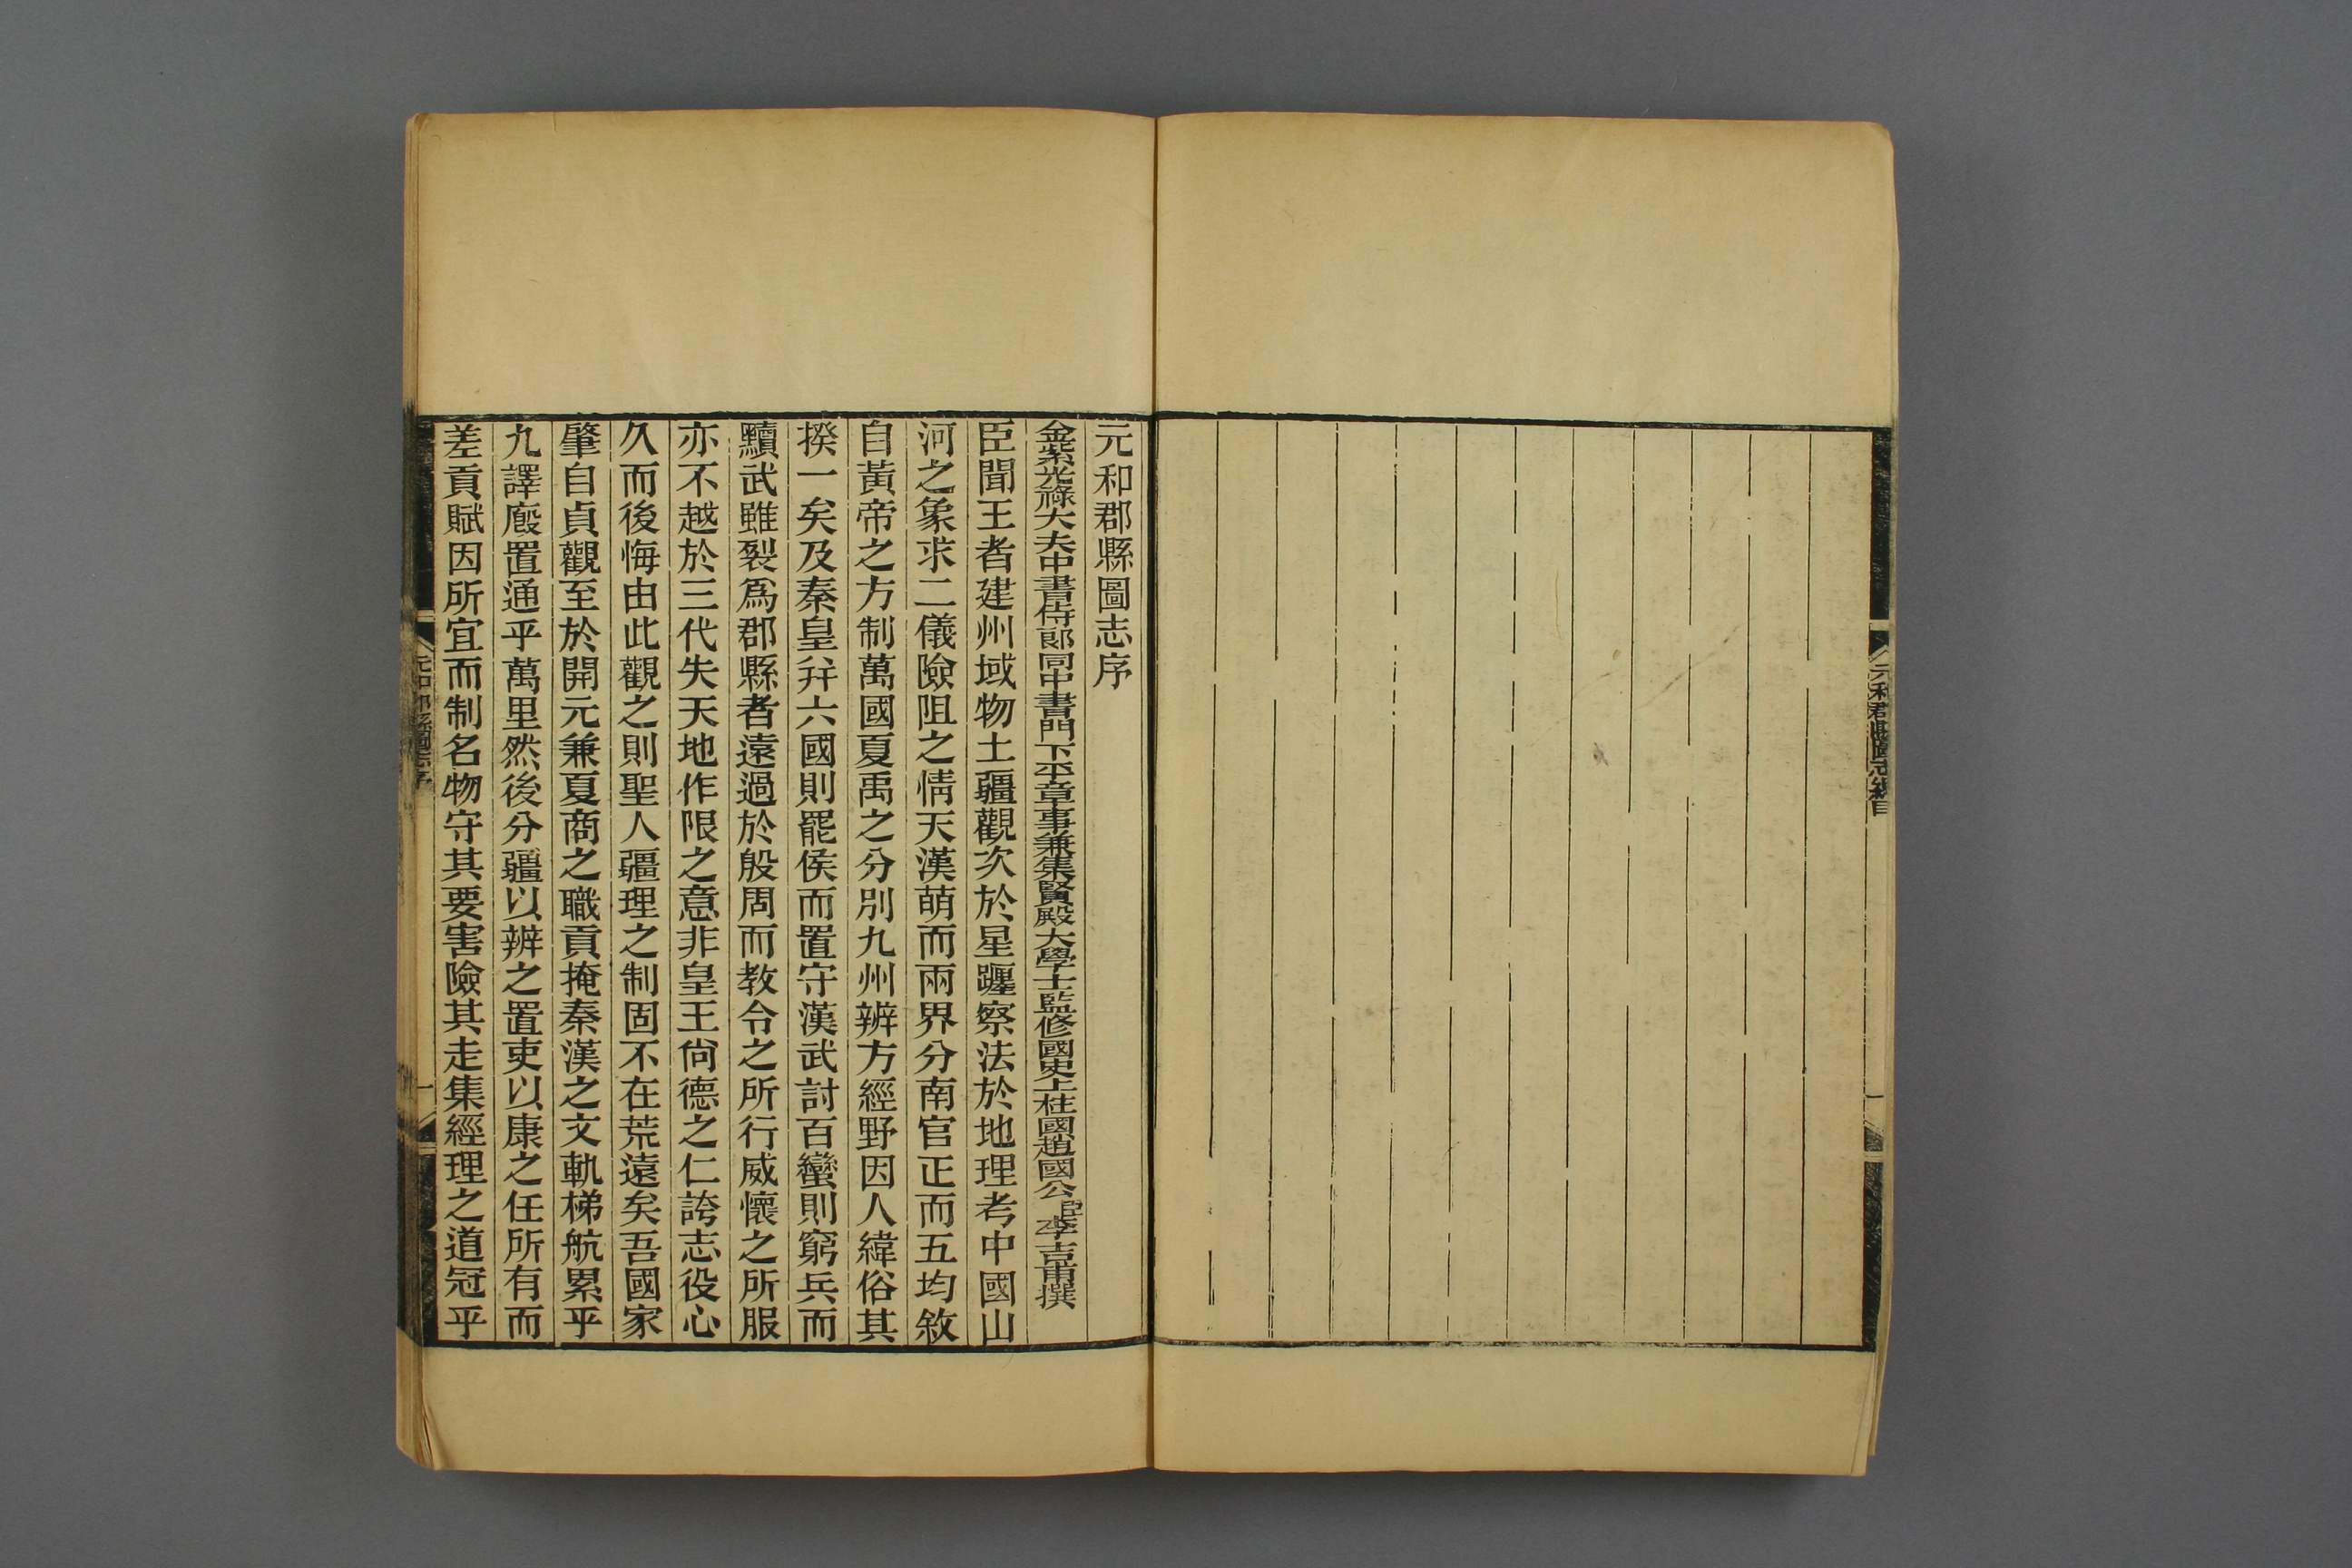 元和郡縣圖志總目
一
元和郡縣圖志序
金紫光祿大夫中書侍郎同中書門下平章事兼集賢殿大學士監修國史上柱國趙國公臣李吉甫撰
臣聞王者建州域物土疆觀次於星躔察法於地理考中國山
河之象求二儀險阻之情天漢萌而兩界分南官正而五均敘
自黃帝之方制萬國夏禹之分別九州辨方經野因人緯俗其
揆一矣及秦皇幷六國則罷侯而置守漢武討百蠻則窮兵而
黷武雖裂爲郡縣者遠過於殷周而教令之所行威懷之所服
亦不越於三代失天地作限之意非皇王尙德之仁誇志役心
久而後悔由此觀之則聖人疆理之制固不在荒遠矣吾國家
肇自貞觀至於開元兼夏商之職貢掩秦漢之文軌梯航累乎
九譯廏置通乎萬里然後分疆以辨之置吏以康之任所有而
差貢賦因所宜而制名物守其要害險其走集經理之道冠乎
元和郡縣圖志序
一